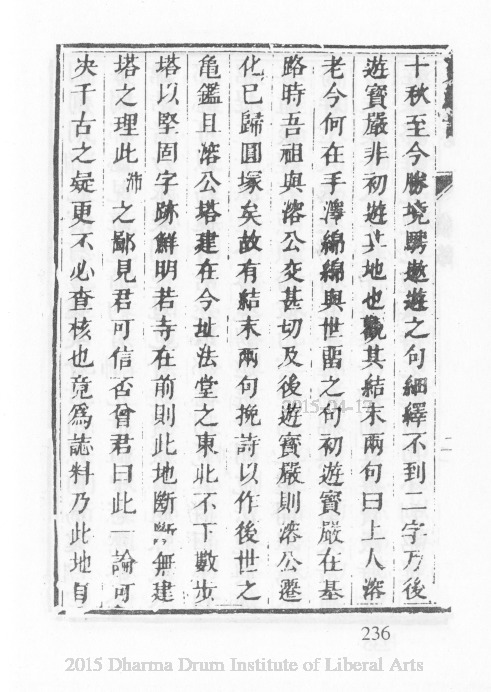 十秋至今勝境騁遨遊之句細繹不到二字乃後
遊寶嚴非初遊之地也觀其結末兩句曰上人溶
老今何在手澤綿綿與世畱之句初遊寶嚴在基
路時吾祖與溶公交甚切及後遊寶嚴則溶公遷
化已歸圓塚矣故有結末兩句挽詩以作後世之
龜鑑且溶公塔建在今址法堂之東北不下數步
塔以堅固字跡鮮明若寺在前則此地斷斷無建
塔之理此沛之鄙見君可信否曾君曰此一論可
決千古之疑更不必查核也竟爲誌料乃此地自
二
2015-04-13
236
2015 Dharma Drum Institute of Liberal Arts